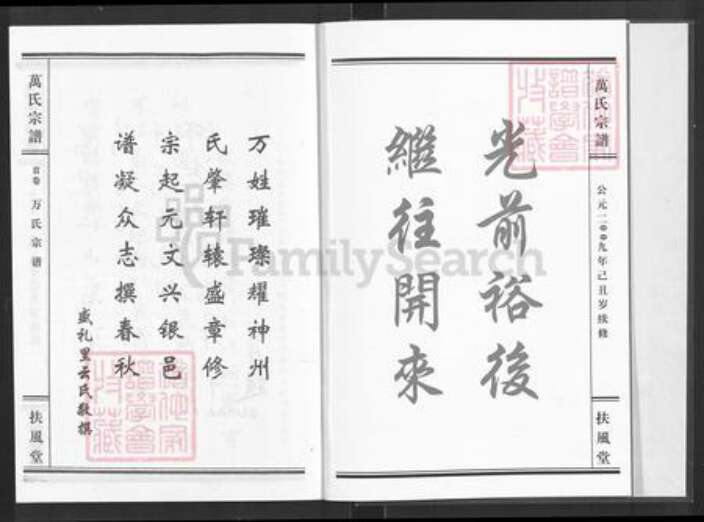 萬氏宗譜
公元二００九年己丑岁续修
扶風堂
光前裕後
繼往開來
万姓璀璨耀神州
氏肇轩辕盛章修
宗起元文兴银邑
谱凝众志撰春秋
盛礼里云氏敬撰
萬氏宗譜
首卷 万氏宗谱
扶風堂
FamilySearch